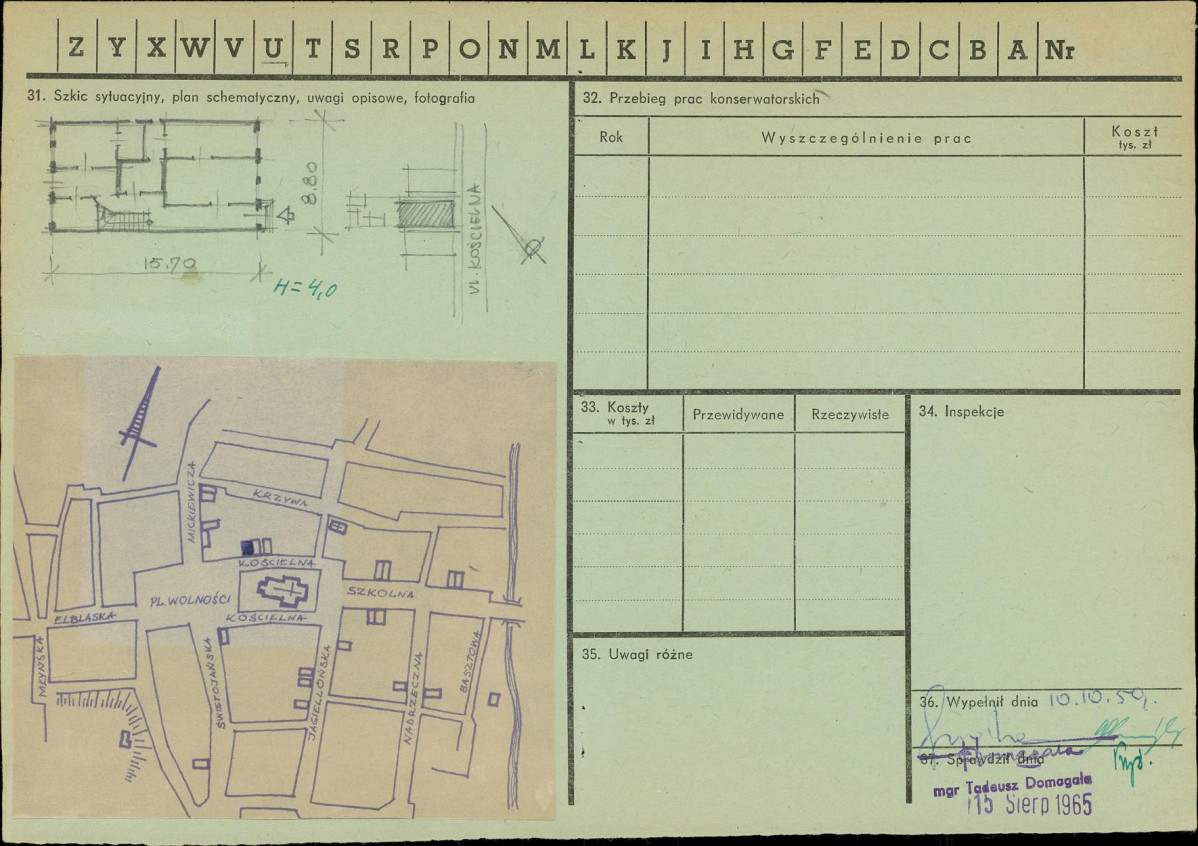 Z Y X W V U T S R P O N M L K J I H G F E D C B A Nr
31. Szkic sytuacyjny, plan schematyczny, uwagi opisowe, fotografia
8.80
15.70
H = 4,0
Ul. KOŚCIELNA
MICKIEWICZA
KRZYWA
KOŚCIELNA
PL. WOLNOŚCI
SZKOLNA
KOŚCIELNA
ELBLĄSKA
MŁYŃSKA
ŚWIĘTOJAŃSKA
JAGIELLOŃSKA
NADRZECZNA
BASZTOWA
32. Przebieg prac konserwatorskich
Rok
Wyszczególnienie prac
Koszt
tys. zł
33. Koszty
w tys. zł
Przewidywane
Rzeczywiste
34. Inspekcje
35. Uwagi różne
36. Wypełnił dnia 10.10.59,.
37. Sprawdził dnia
mgr Tadeusz Domagała
15 Sierp 1965